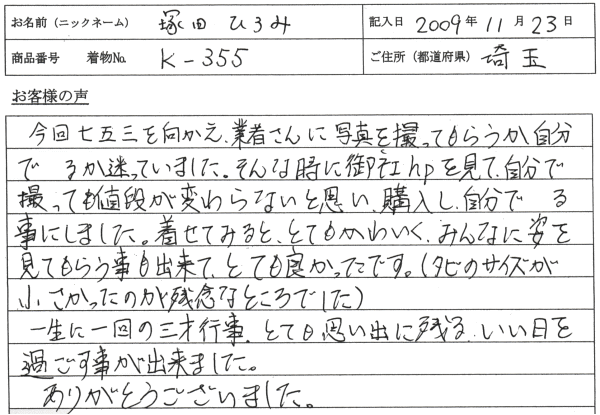 お名前（ニックネーム） 塚田 ひろみ 記入日 2009年 11月 23日
商品番号 着物No. K-355 ご住所（都道府県） 埼玉
お客様の声
今回七五三を向かえ、業者さんに写真を撮ってもらうか自分
で るか迷っていました。そんな時に御社hpを見て、自分で
撮っても値段が変わらないと思い、購入し、自分で る
事にしました。着せてみると、とてもかわいく、みんなに姿を
見てもらう事も出来て、とても良かったです。（タビのサイズが
小さかったのが残念なところでした）
一生に一回の三才行事、とても思い出に残る、いい日を
過ごす事が出来ました。
ありがとうございました。